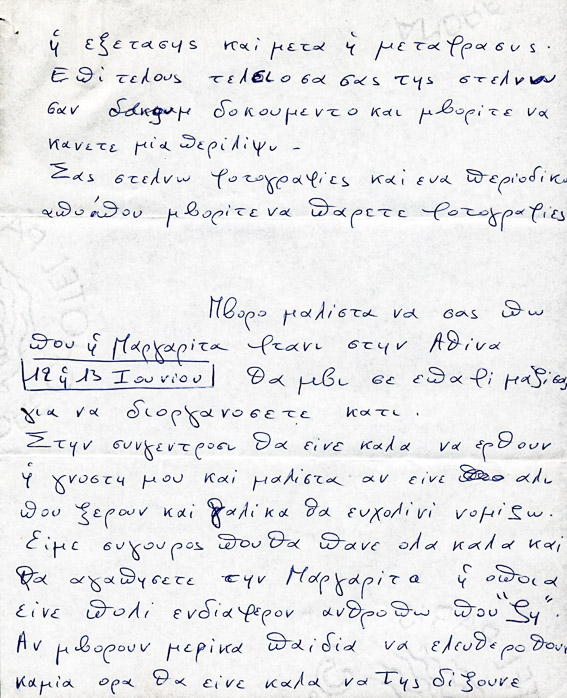 ή εξετασης και μετα ή μεταφρασυς.
Επι τελους τελειοσα σας της στελνω
σαν δοκουμεντο και μβοριτε να
κανετε μια περιλιψι -
Σας στελνω φοτογραφιες και ενα περιοδικο
απο όπου μβοριτε να παρετε φοτογραφιες
Μβορο μαλιστα να σας πω
που ή Μαργαριτα φτανι στην Αθινα
12 ή 13 Ιουνιου θα μβι σε επαφι μαζι σας
για να διοργανοσετε κατι.
Στην συνγεντροσι θα εινε καλα να ερθουν
ή γνοστη μου και μαλιστα αν εινε αλι
που ξερουν και γαλικα θα ευχολινι νομιζω.
Ειμε συγουρος που θα πανε ολα καλα και
θα αγαπησετε την Μαργαριτα ή οποια
εινε πολι ενδιαφερον ανθροπω που "ζη".
Αν μβορουν μερικα παιδια να ελευθεροθουν
καμια ορα θα εινε καλα να της διξουνε